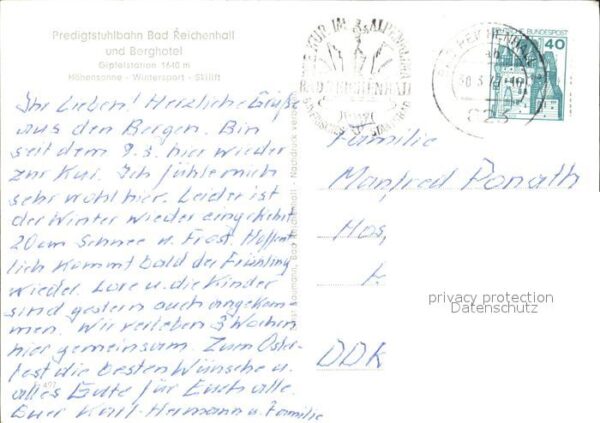 Predigtstuhlbahn Bad Reichenhall
und Berghotel
Gipfelstation 1640 m
Höhensonne - Wintersport - Skilift
ZUR KUR IM ALPENKLIMA
BAD REICHENHALL
DEUTSCHE BUNDESPOST
40
BAD REICHENHALL
823
Ihr Lieben! Herzliche Grüße
aus den Bergen. Bin
seit dem 9.3. hier wieder
zur Kur. Ich fühle mich
sehr wohl hier. Leider ist
der Winter wieder eingekehrt
20 cm Schnee u. Frost. Hoffent
lich kommt bald der Frühling
wieder. Lore u. die Kinder
sind gestern auch angekom-
men. Wir verleben 3 Wochen
hier gemeinsam. Zum Oster-
fest die besten Wünsche u.
alles Gute für Euch alle.
Euer Karl-Hermann u. Familie
Familie
Manfred Donath
DDR
privacy protection
Datenschutz